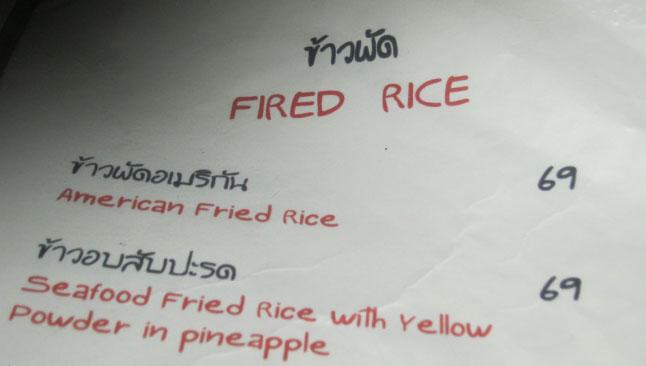 ข้าวผัด
FIRED RICE
ข้าวผัดอเมริกัน 69
American Fried Rice
ข้าวอบสับปะรด 69
Seafood Fried Rice with Yellow
Powder in pineapple